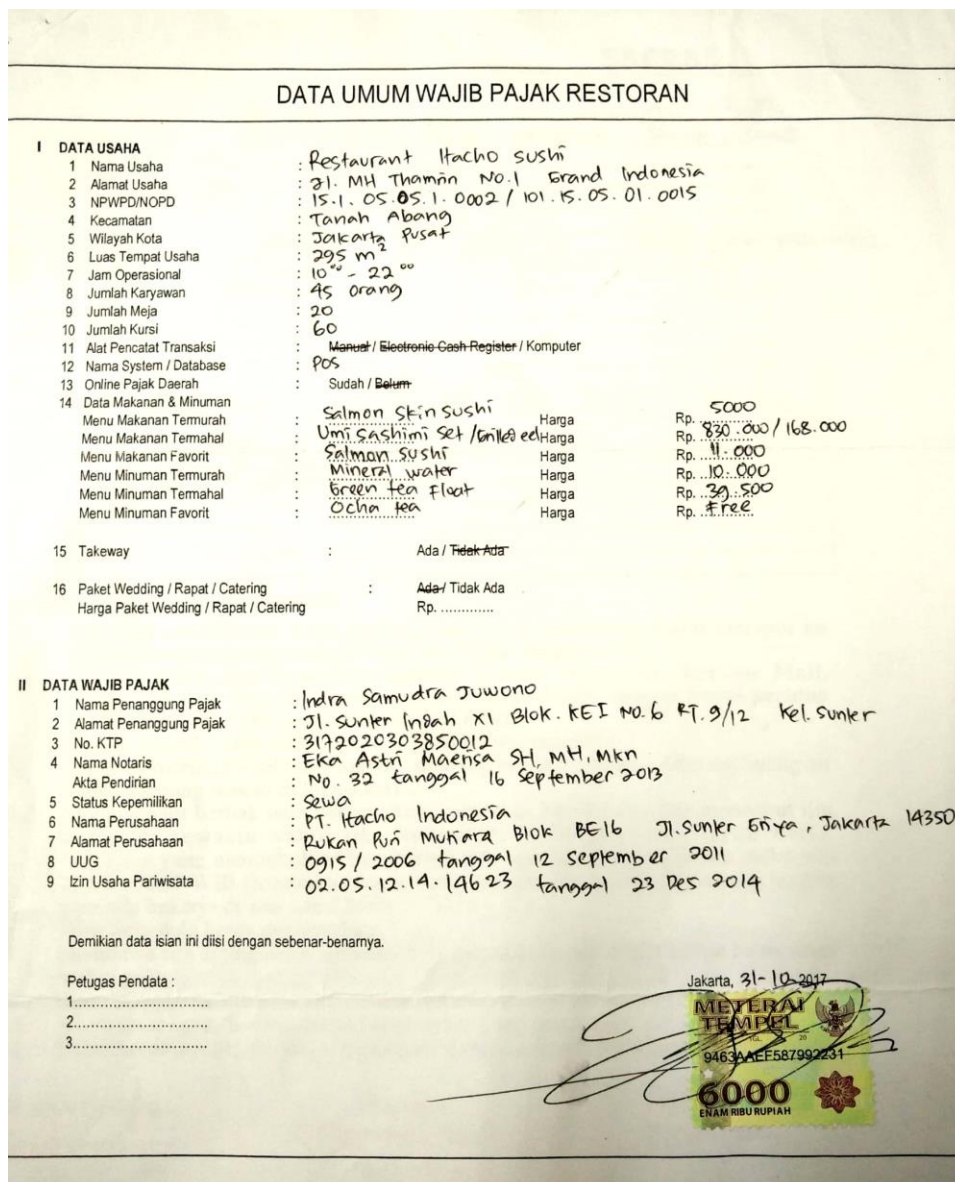 DATA UMUM WAJIB PAJAK RESTORAN
I DATA USAHA
1 Nama Usaha : Restaurant Itacho Sushi
2 Alamat Usaha : Jl. MH Thamrin No.1 Grand Indonesia
3 NPWPD/NOPD : 15.1.05.05.1.0002 / 101.15.05.01.0015
4 Kecamatan : Tanah Abang
5 Wilayah Kota : Jakarta Pusat
6 Luas Tempat Usaha : 295 m²
7 Jam Operasional : 10°° - 22°°
8 Jumlah Karyawan : 45 orang
9 Jumlah Meja : 20
10 Jumlah Kursi : 60
11 Alat Pencatat Transaksi : Manual / Electronic Cash Register / Komputer
12 Nama System / Database : POS
13 Online Pajak Daerah : Sudah / Belum
14 Data Makanan & Minuman
Menu Makanan Termurah : Salmon Skin Sushi Harga Rp. 5000
Menu Makanan Termahal : Umi Sashimi Set / Grilled eel Harga Rp. 830.000 / 168.000
Menu Makanan Favorit : Salmon Sushi Harga Rp. 11.000
Menu Minuman Termurah : Mineral water Harga Rp. 10.000
Menu Minuman Termahal : Green tea Float Harga Rp. 39.500
Menu Minuman Favorit : Ocha tea Harga Rp. Free
15 Takeway : Ada / Tidak Ada
16 Paket Wedding / Rapat / Catering : Ada / Tidak Ada
Harga Paket Wedding / Rapat / Catering Rp. .............
II DATA WAJIB PAJAK
1 Nama Penanggung Pajak : Indra Samudra Juwono
2 Alamat Penanggung Pajak : Jl. Sunter Indah XI Blok. KEI No.6 RT.9/12 Kel. Sunter
3 No. KTP : 3172020303850012
4 Nama Notaris : Eka Astri Maerisa SH, MH, Mkn
Akta Pendirian : No. 32 tanggal 16 September 2013
5 Status Kepemilikan : Sewa
6 Nama Perusahaan : PT. Itacho Indonesia
7 Alamat Perusahaan : Rukan Puri Mutiara Blok BE16 Jl. Sunter Griya, Jakarta 14350
8 UUG : 0915 / 2006 tanggal 12 September 2011
9 Izin Usaha Pariwisata : 02.05.12.14.14623 tanggal 23 Des 2014
Demikian data isian ini diisi dengan sebenar-benarnya.
Petugas Pendata :
1................................
2................................
3................................
Jakarta, 31-10-2017
METERAI
TEMPEL
TGL. 20
9463AAEF587992231
6000
ENAM RIBU RUPIAH